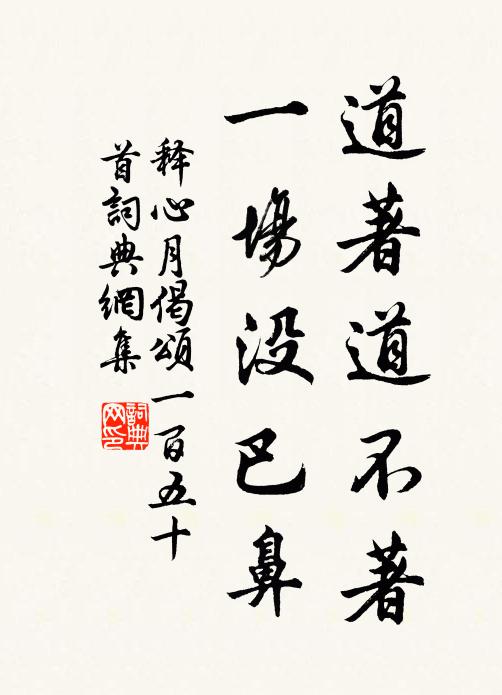 道著道不著
一場没巴鼻
释心月偈頌一百五十
首詞典網集
詞典
网印